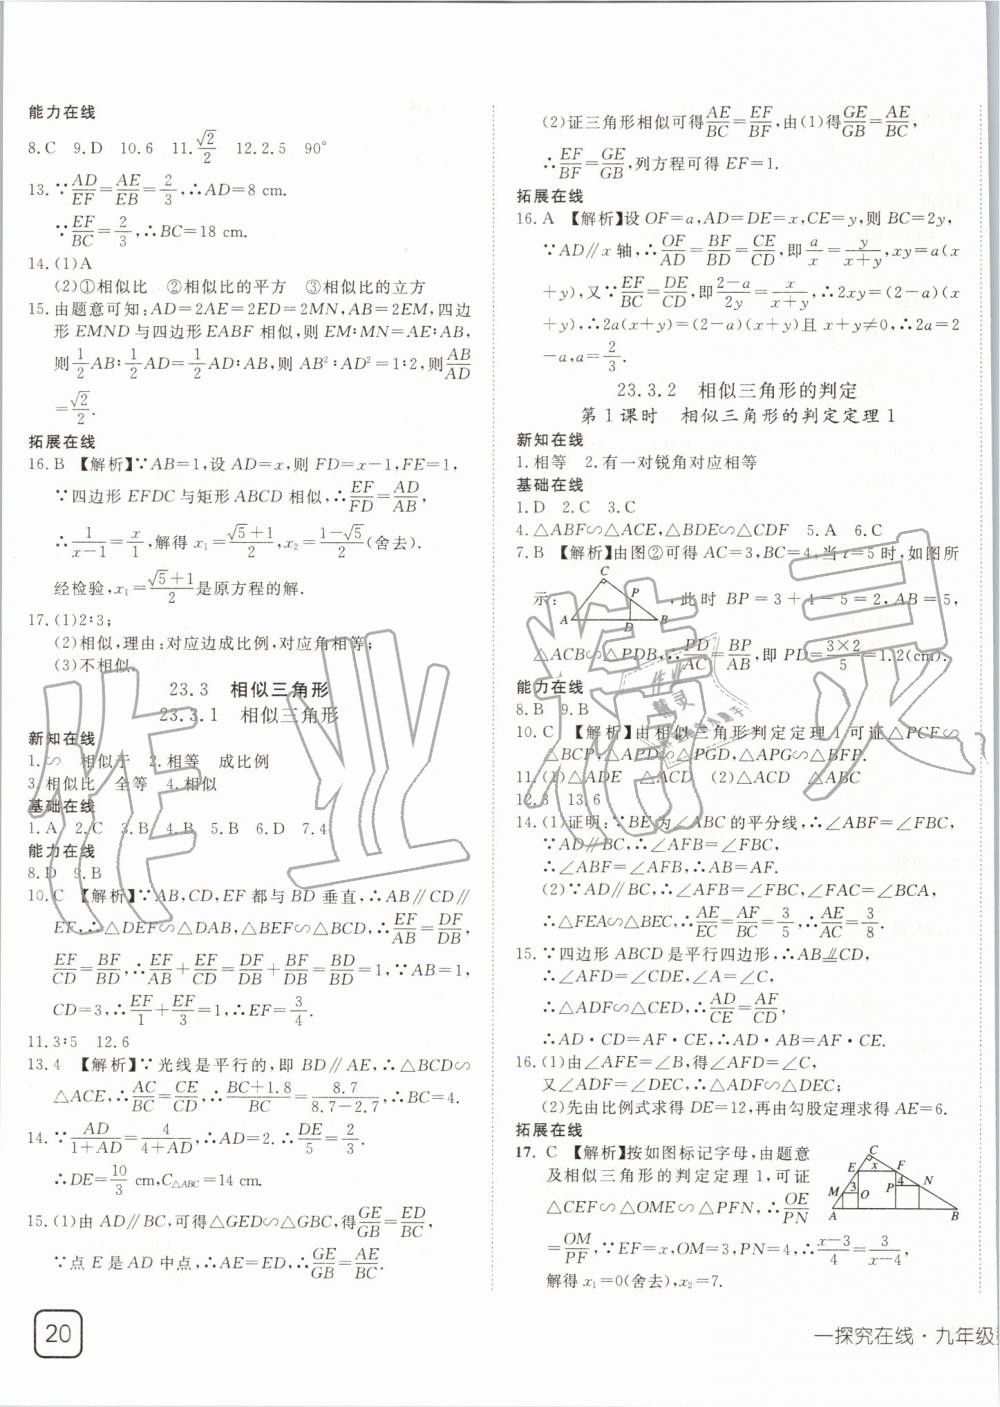 能力在线
8.C 9.D 10.6 11.√2/2 12.2.5 90°
13.∵AD/EF=AE/EB=2/3,∴AD=8 cm.
∵EF/BC=2/3,∴BC=18 cm.
14.(1)A
(2)①相似比 ②相似比的平方 ③相似比的立方
15.由题意可知:AD=2AE=2ED=2MN,AB=2EM,四边
形EMND与四边形EABF相似,则EM∶MN=AE∶AB,
则1/2AB∶1/2AD=1/2AD∶AB,则AB²∶AD²=1∶2,则AB/AD
=√2/2.
拓展在线
16.B 【解析】∵AB=1,设AD=x,则FD=x-1,FE=1,
∵四边形EFDC与矩形ABCD相似,∴EF/FD=AD/AB,
∴1/(x-1)=x/1,解得x₁=(√5+1)/2,x₂=(1-√5)/2(舍去).
经检验,x₁=(√5+1)/2是原方程的解.
17.(1)2∶3;
(2)相似,理由:对应边成比例,对应角相等;
(3)不相似.
23.3 相似三角形
23.3.1 相似三角形
新知在线
1.∽ 相似于 2.相等 成比例
3.相似比 全等 4.相似
基础在线
1.A 2.C 3.B 4.B 5.B 6.D 7.4
能力在线
8.D 9.B
10.C 【解析】∵AB,CD,EF都与BD垂直,∴AB∥CD∥
EF,∴△DEF∽△DAB,△BEF∽△BCD,∴EF/AB=DF/DB,
EF/CD=BF/BD,∴EF/AB+EF/CD=DF/DB+BF/BD=BD/BD=1,∵AB=1,
CD=3,∴EF/1+EF/3=1,∴EF=3/4.
11.3∶5 12.6
13.4 【解析】∵光线是平行的,即BD∥AE,∴△BCD∽
△ACE,∴AC/BC=CE/CD,∴(BC+1.8)/BC=8.7/(8.7-2.7),∴BC=4.
14.∵AD/(1+AD)=4/(4+AD),∴AD=2.∴DE/5=2/3.
∴DE=10/3 cm,C△ABC=14 cm.
15.(1)由AD∥BC,可得△GED∽△GBC,得GE/GB=ED/BC,
∵点E是AD中点,∴AE=ED,∴GE/GB=AE/BC.
20
(2)证三角形相似可得AE/BC=EF/BF,由(1)得GE/GB=AE/BC,
∴EF/BF=GE/GB,列方程可得EF=1.
拓展在线
16.A 【解析】设OF=a,AD=DE=x,CE=y,则BC=2y,
∵AD∥x轴,∴OF/AD=BF/BD=CE/CD,即a/x=y/(x+y),xy=a(x
+y),又∵EF/BC=DE/CD,即(2-a)/2y=x/(x+y),∴2xy=(2-a)(x
+y),∴2a(x+y)=(2-a)(x+y)且x+y≠0,∴2a=2
-a,a=2/3.
23.3.2 相似三角形的判定
第1课时 相似三角形的判定定理1
新知在线
1.相等 2.有一对锐角对应相等
基础在线
1.D 2.C 3.C
4.△ABF∽△ACE,△BDE∽△CDF 5.A 6.C
7.B 【解析】由图②可得AC=3,BC=4,当t=5时,如图所
示: ,此时BP=3+4-5=2,AB=5,
C
P
A D B
△ACB∽△PDB,∴PD/AC=BP/AB,即PD=(3×2)/5=1.2(cm).
能力在线
8.B 9.B
10.C 【解析】由相似三角形判定定理1可证△PCF∽
△BCP,△APD∽△PGD,△APG∽△BFP.
11.(1)△ADE △ACD (2)△ACD △ABC
12.3 13.6
14.(1)证明:∵BE为∠ABC的平分线,∴∠ABF=∠FBC,
∵AD∥BC,∴∠AFB=∠FBC,
∴∠ABF=∠AFB,∴AB=AF.
(2)∵AD∥BC,∴∠AFB=∠FBC,∠FAC=∠BCA,
∴△FEA∽△BEC,∴AE/EC=AF/BC=3/5,∴AE/AC=3/8.
15.∵四边形ABCD是平行四边形,∴AB⫫CD,
∴∠AFD=∠CDE,∠A=∠C,
∴△ADF∽△CED,∴AD/CE=AF/CD,
∴AD·CD=AF·CE,∴AD·AB=AF·CE.
16.(1)由∠AFE=∠B,得∠AFD=∠C,
又∠ADF=∠DEC,∴△ADF∽△DEC;
(2)先由比例式求得DE=12,再由勾股定理求得AE=6.
拓展在线
17.C 【解析】按如图标记字母,由题意
及相似三角形的判定定理1,可证
△CEF∽△OME∽△PFN,∴OE/PN
=OM/PF,∵EF=x,OM=3,PN=4,∴(x-3)/4=3/(x-4),
解得x₁=0(舍去),x₂=7.
C
E x F
M 3 O P 4 N
A B
一探究在线·九年级
作业精灵